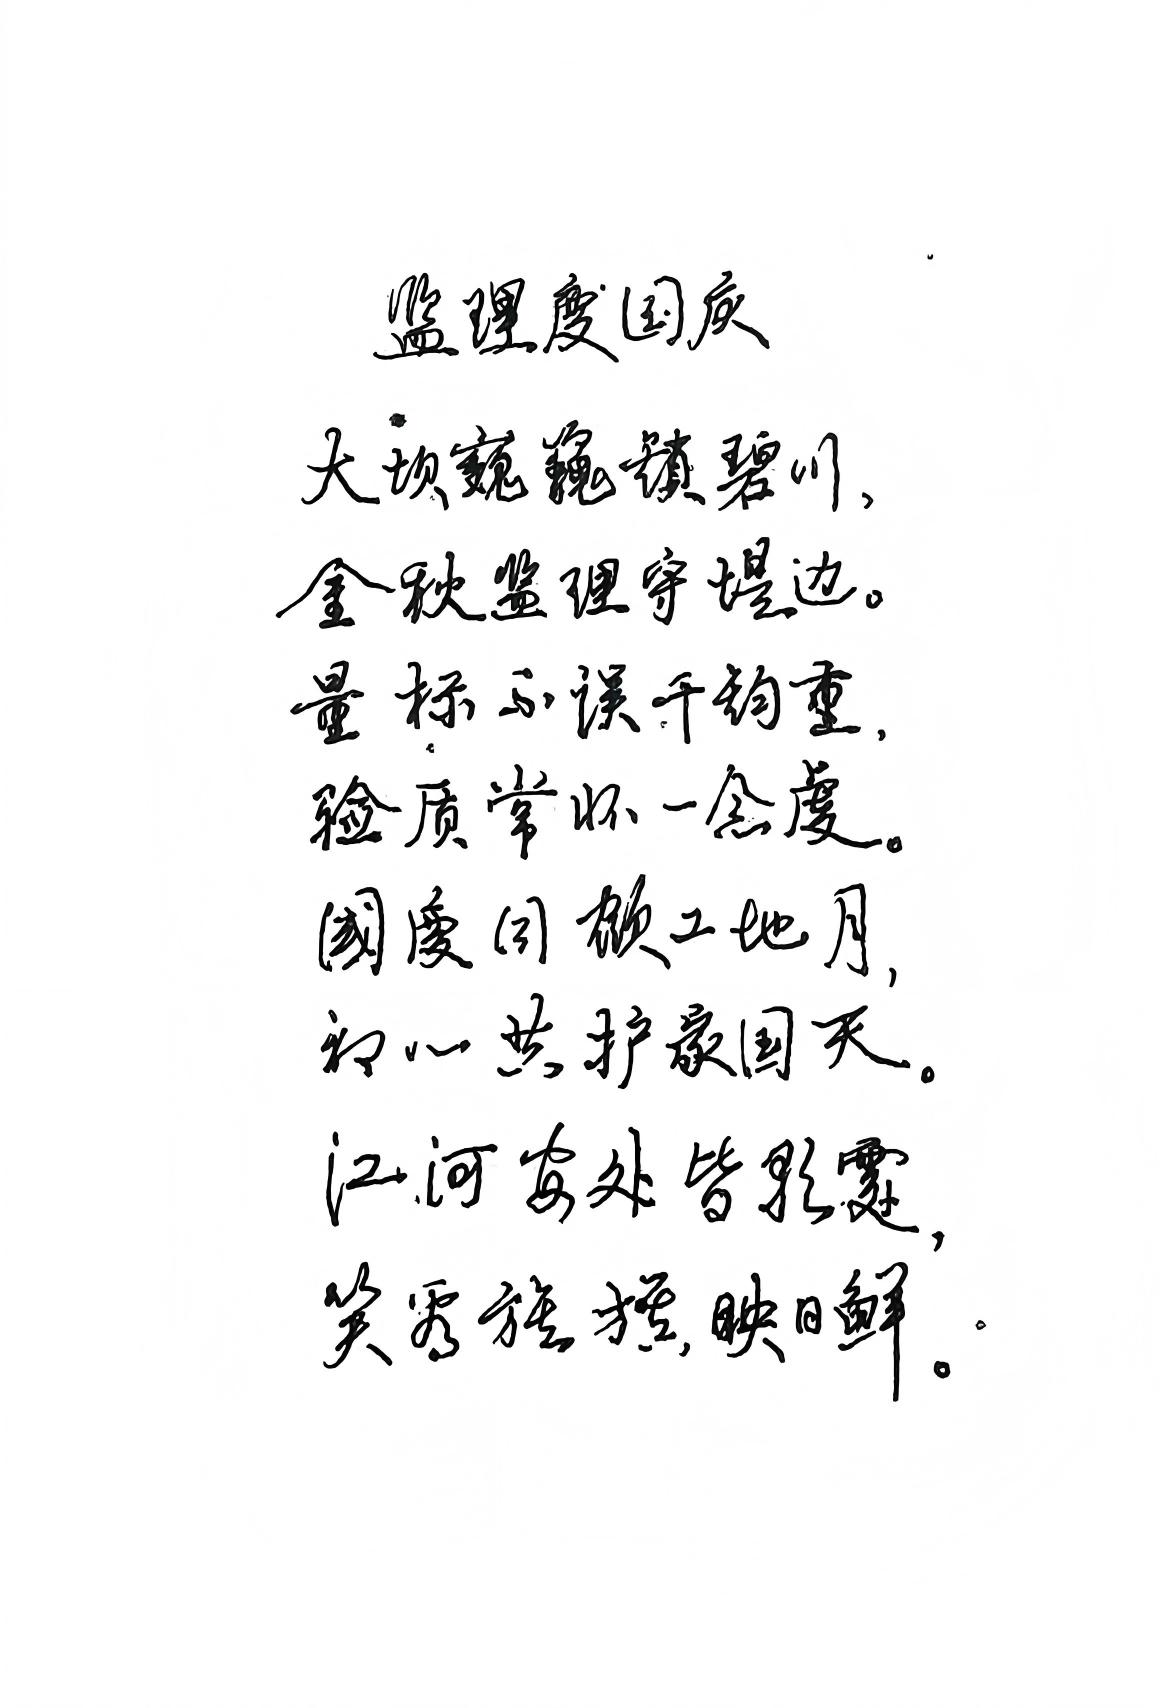 监理度国庆
大坝巍巍镇碧川，
金秋监理守堤边。
量标不误千钧重，
验质常怀一念虔。
國慶同颜工地月，
初心共护家国天。
江河安处皆彩霞，
笑看旌旗映日鲜。